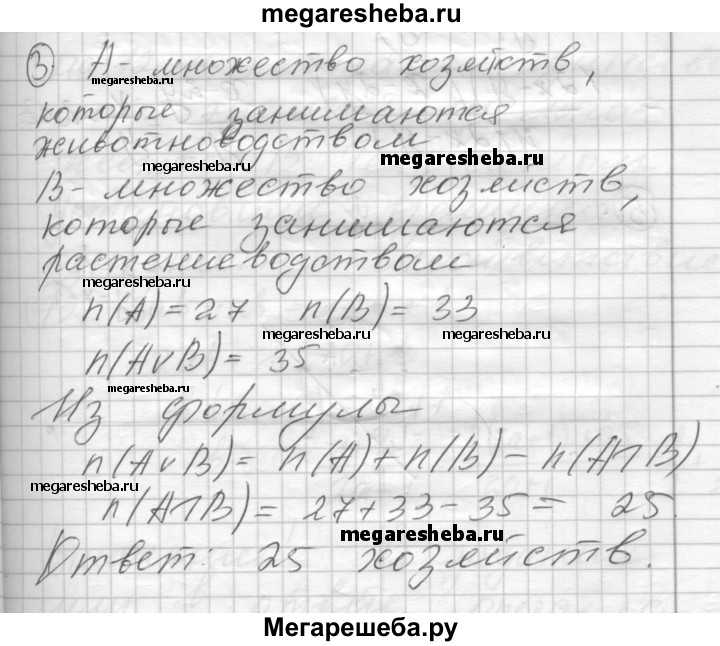 megaresheba.ru
③ A - множество хозяйств,
megaresheba.ru
которые занимаются
животноводством
megaresheba.ru
megaresheba.ru
B - множество хозяйств,
которые занимаются
растениеводством
megaresheba.ru
n(A) = 27 n(B) = 33
megaresheba.ru megaresheba.ru
n(A∪B) = 35
megaresheba.ru
Из формулы
n(A∪B) = n(A) + n(B) - n(A∩B)
megaresheba.ru
n(A∩B) = 27 + 33 - 35 = 25.
megaresheba.ru
Ответ: 25 хозяйств.
Мегарешеба.ру